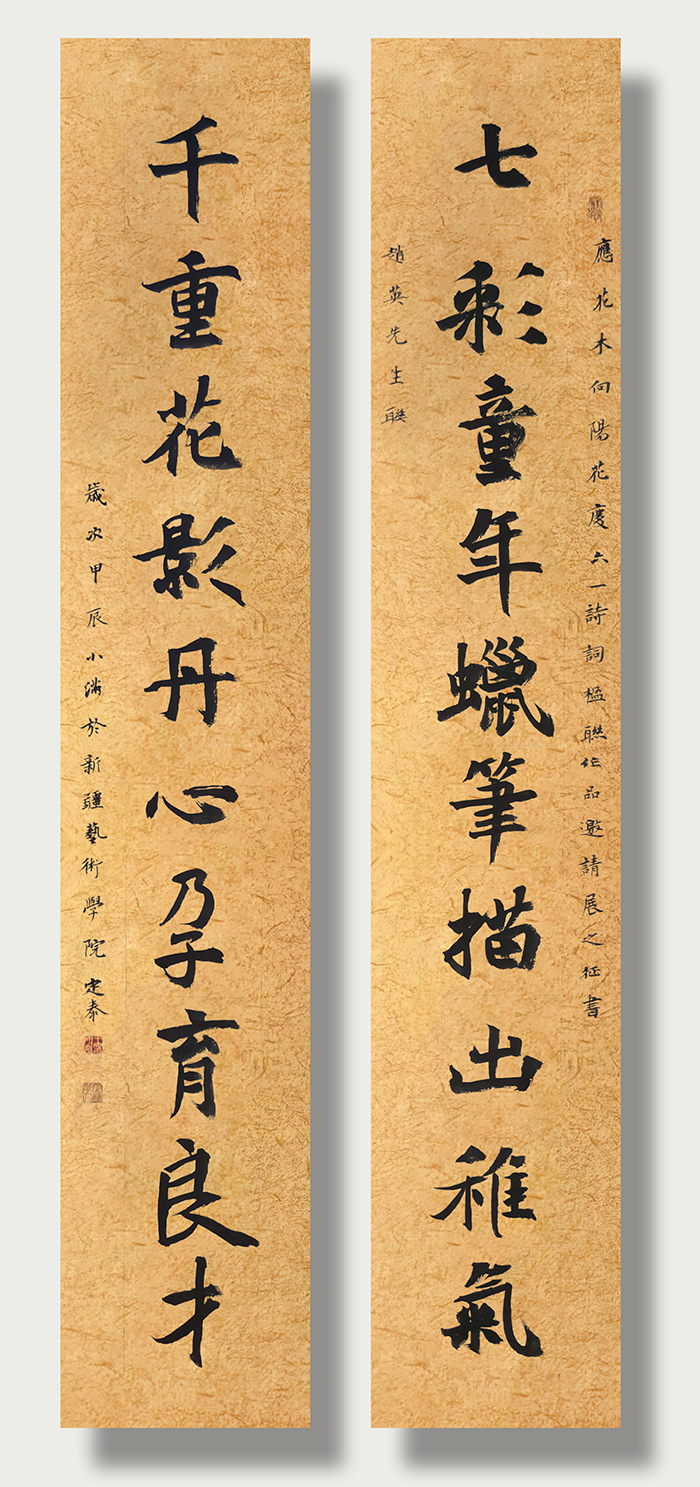 應花木向陽花慶六一詩詞楹聯作品邀請展之征書
七彩童年蠟筆描出稚氣
趙英先生聯
千重花影丹心孕育良才
歲次甲辰小滿於新疆藝術學院定泰